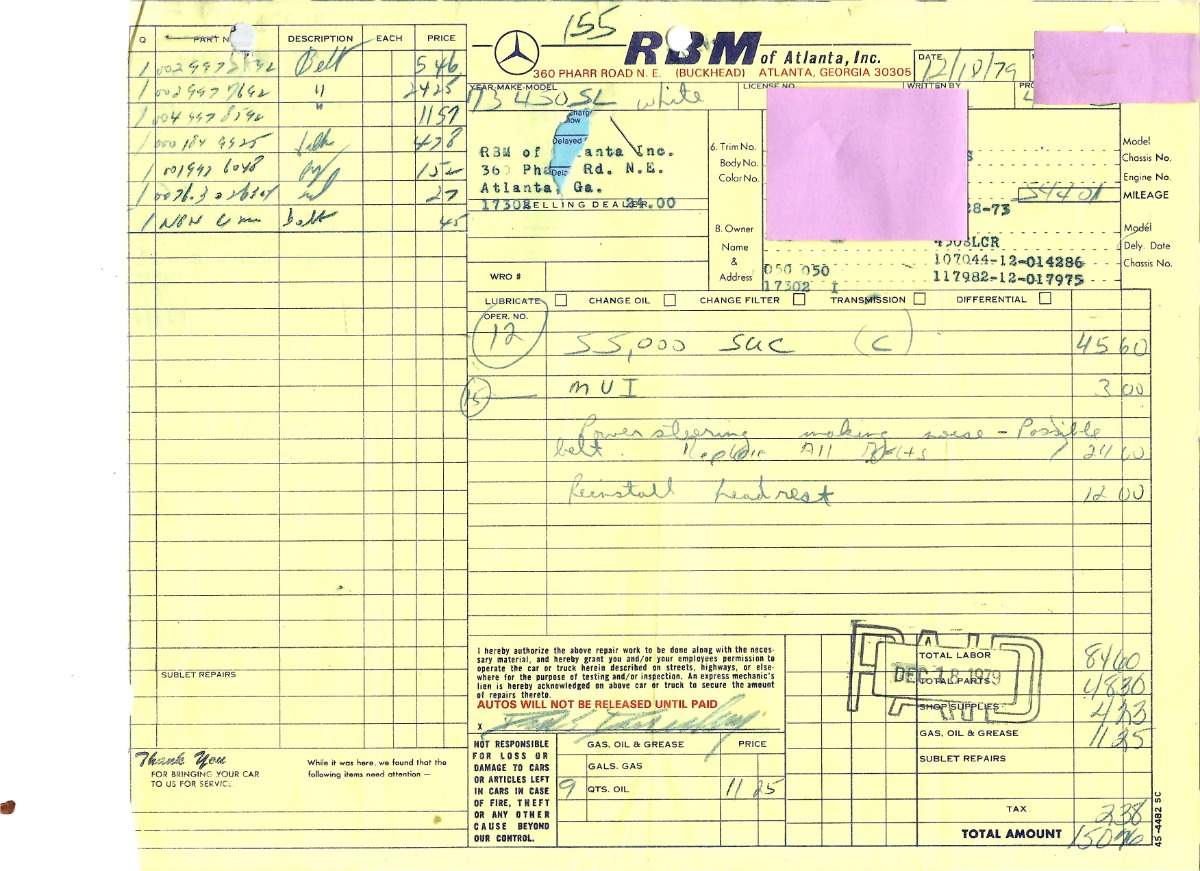 155
RBM of Atlanta, Inc.
360 PHARR ROAD N. E. (BUCKHEAD) ATLANTA, GEORGIA 30305
DATE 12/18/79
WRITTEN BY
YEAR-MAKE-MODEL
LICENSE NO
73 450SL white
Q PART N DESCRIPTION EACH PRICE
1 Belt 5 46
1 002 997 7692 " 24 25
1 004 997 8592 " 11 57
1 000 184 9525 4 78
1 001 992 6048 1 52
1 27
1 45
RBM of anta Inc.
36 Pha Rd. N.E.
Atlanta, Ga.
17302 24.00
SELLING DEALER
Delayed
6. Trim No.
Body No.
Color No.
8. Owner
Name
&
Address
28-73
450SLCR
107044-12-014286
050 050
117982-12-017975
17302 I
Model
Chassis No.
Engine No.
MILEAGE
Model
Dely. Date
Chassis No.
WRO #
LUBRICATE CHANGE OIL CHANGE FILTER TRANSMISSION DIFFERENTIAL
OPER. NO.
12 55,000 SUC (C) 45 60
15 MUI 3 00
Power steering making noise - Possible
belt. Replace All Belts 24 00
Reinstall headrest 12 00
I hereby authorize the above repair work to be done along with the neces-
sary material, and hereby grant you and/or your employees permission to
operate the car or truck herein described on streets, highways, or else-
where for the purpose of testing and/or inspection. An express mechanic's
lien is hereby acknowledged on above car or truck to secure the amount
of repairs thereto.
AUTOS WILL NOT BE RELEASED UNTIL PAID
X
PAID
DEC 18 1979
TOTAL LABOR 84 60
TOTAL PARTS 48 30
SHOP SUPPLIES 4 23
GAS, OIL & GREASE 11 25
SUBLET REPAIRS
TAX 2 38
TOTAL AMOUNT 150 76
SUBLET REPAIRS
Thank You
FOR BRINGING YOUR CAR
TO US FOR SERVICE.
While it was here, we found that the
following items need attention —
NOT RESPONSIBLE
FOR LOSS OR
DAMAGE TO CARS
OR ARTICLES LEFT
IN CARS IN CASE
OF FIRE, THEFT
OR ANY OTHER
CAUSE BEYOND
OUR CONTROL.
GAS, OIL & GREASE PRICE
GALS. GAS
9 QTS. OIL 11 25
45-4482 SC